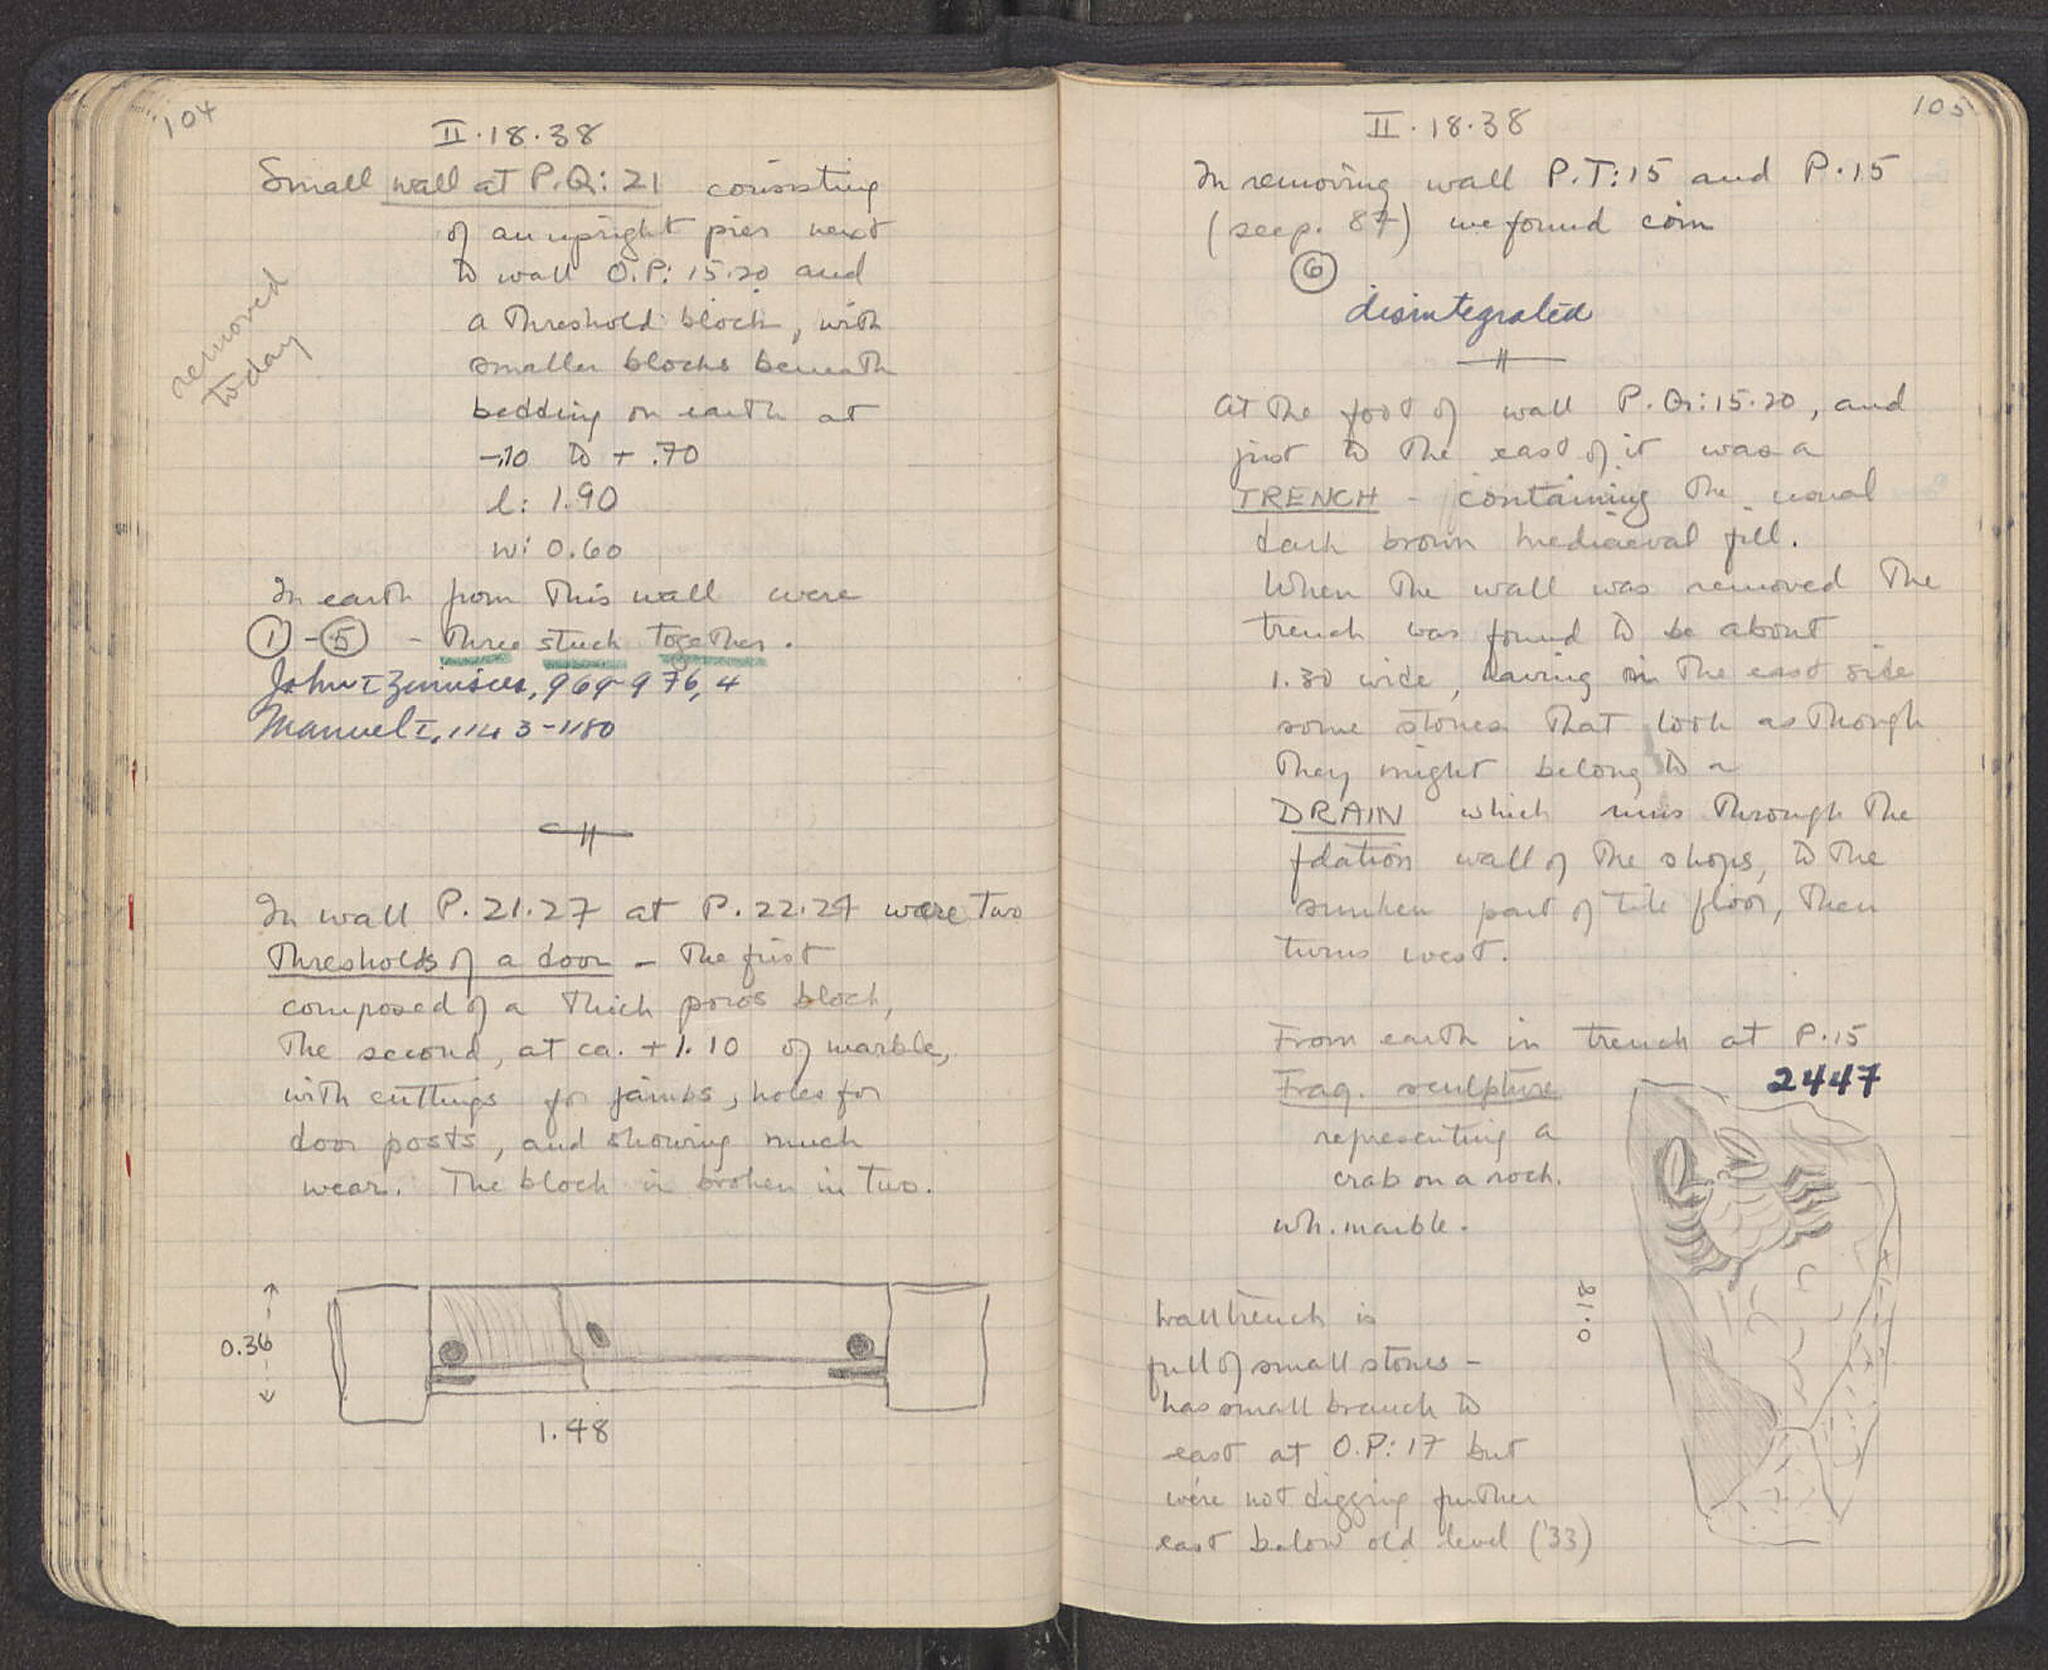 104
II.18.38
Small wall at P.Q: 21 consisting
of an upright pier next
to wall O.P: 15.20 and
a threshold block, with
smaller blocks beneath
bedding on earth at
-.10 to + .70
l: 1.90
w: 0.60
removed
today
In earth from this wall were
① - ⑤ - three stuck together.
John I Zimisces, 969-976, 4
Manuel I, 1143-1180
In wall P.21.27 at P.22.24 were two
thresholds of a door - the first
composed of a thick poros block,
the second, at ca. +1.10 of marble,
with cuttings for jambs, holes for
door posts, and showing much
wear. The block is broken in two.
0.36
1.48
105
II.18.38
In removing wall P.T:15 and P.15
(see p. 87) we found coin
⑥
disintegrated
At the foot of wall P.Q:15.20, and
just to the east of it was a
TRENCH - containing the usual
dark brown mediaeval fill.
When the wall was removed the
trench was found to be about
1.30 wide, having in the east side
some stones that look as though
they might belong to a
DRAIN which runs through the
fdation wall of the shops, to the
sunken part of tile floor, then
turns west.
From earth in trench at P.15
2447
Frag. sculpture
representing a
crab on a rock.
wh. marble.
0.18
Wall trench is
full of small stones -
has small branch to
east at O.P: 17 but
we're not digging further
east below old level ('33)